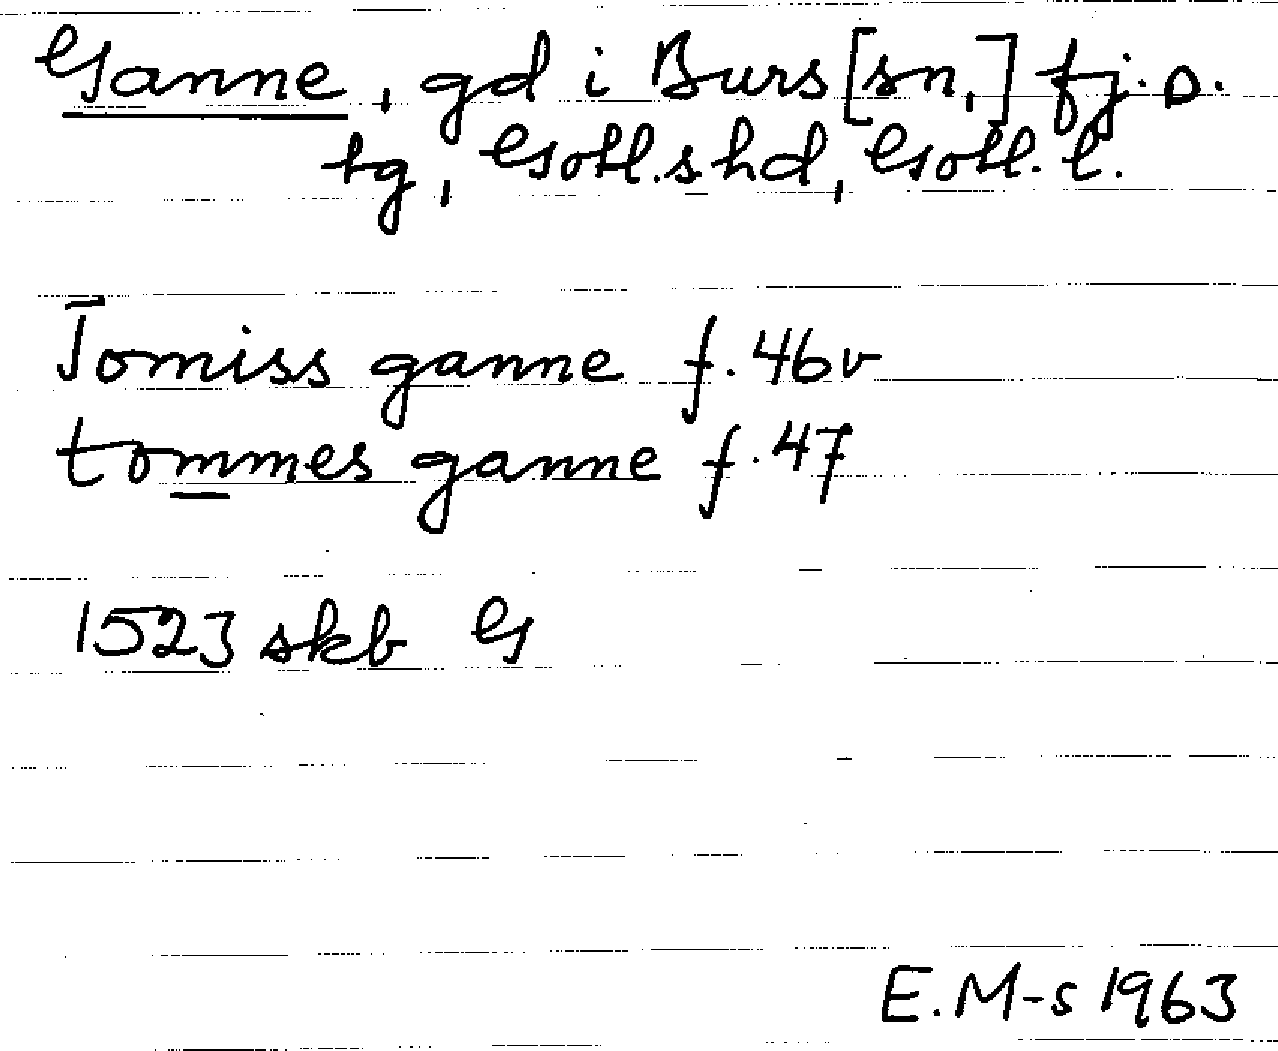 Ganne, gd i Burs [sn,] fj. o.
tg, Gotl.s hd, Gotl. l.
Tomiss ganne f. 46v
tommes ganne f. 47
1523 skb G
E. M-s 1963